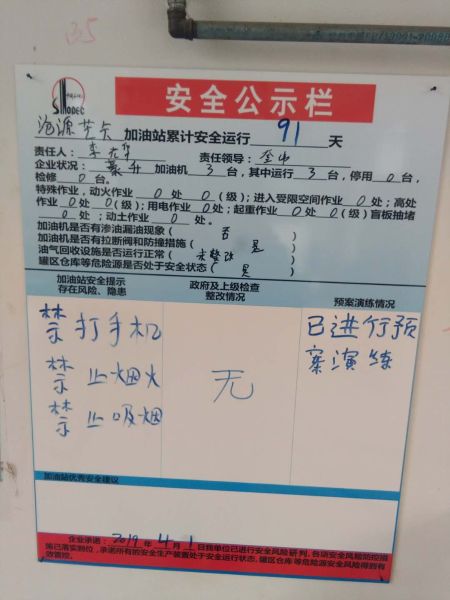 35
SINOPEC
安全公示栏
加油站累计安全运行 91 天
责任人： 责任领导：
企业状况： 加油机 3 台，其中运行 3 台，停用 0 台，
检修 0 台。
特殊作业，动火作业 0 处 0 （级）；进入受限空间作业 0 处；高处
作业 0 处 0 （级）；用电作业 0 处；起重作业 0 处 0 （级）盲板抽堵
0 处；动土作业 0 处。
加油机是否有渗油漏油现象（ 否 ）
加油机是否有拉断阀和防撞措施（ 是 ）
油气回收设施是否运行正常（ 未整改 ）
罐区仓库等危险源是否处于安全状态（ 是 ）
加油站安全提示
存在风险、隐患
政府及上级检查
整改情况
预案演练情况
禁打手机
禁止烟火
禁止吸烟
无
已进行预
案演练
加油站优秀安全建议
企业承诺：2019 年 4 月 1 日我单位已进行安全风险研判，各项安全风险防控措
施已落实到位，承诺所有的安全生产装置处于安全运行状态，罐区仓库等危险源安全风险得到有
效管控。